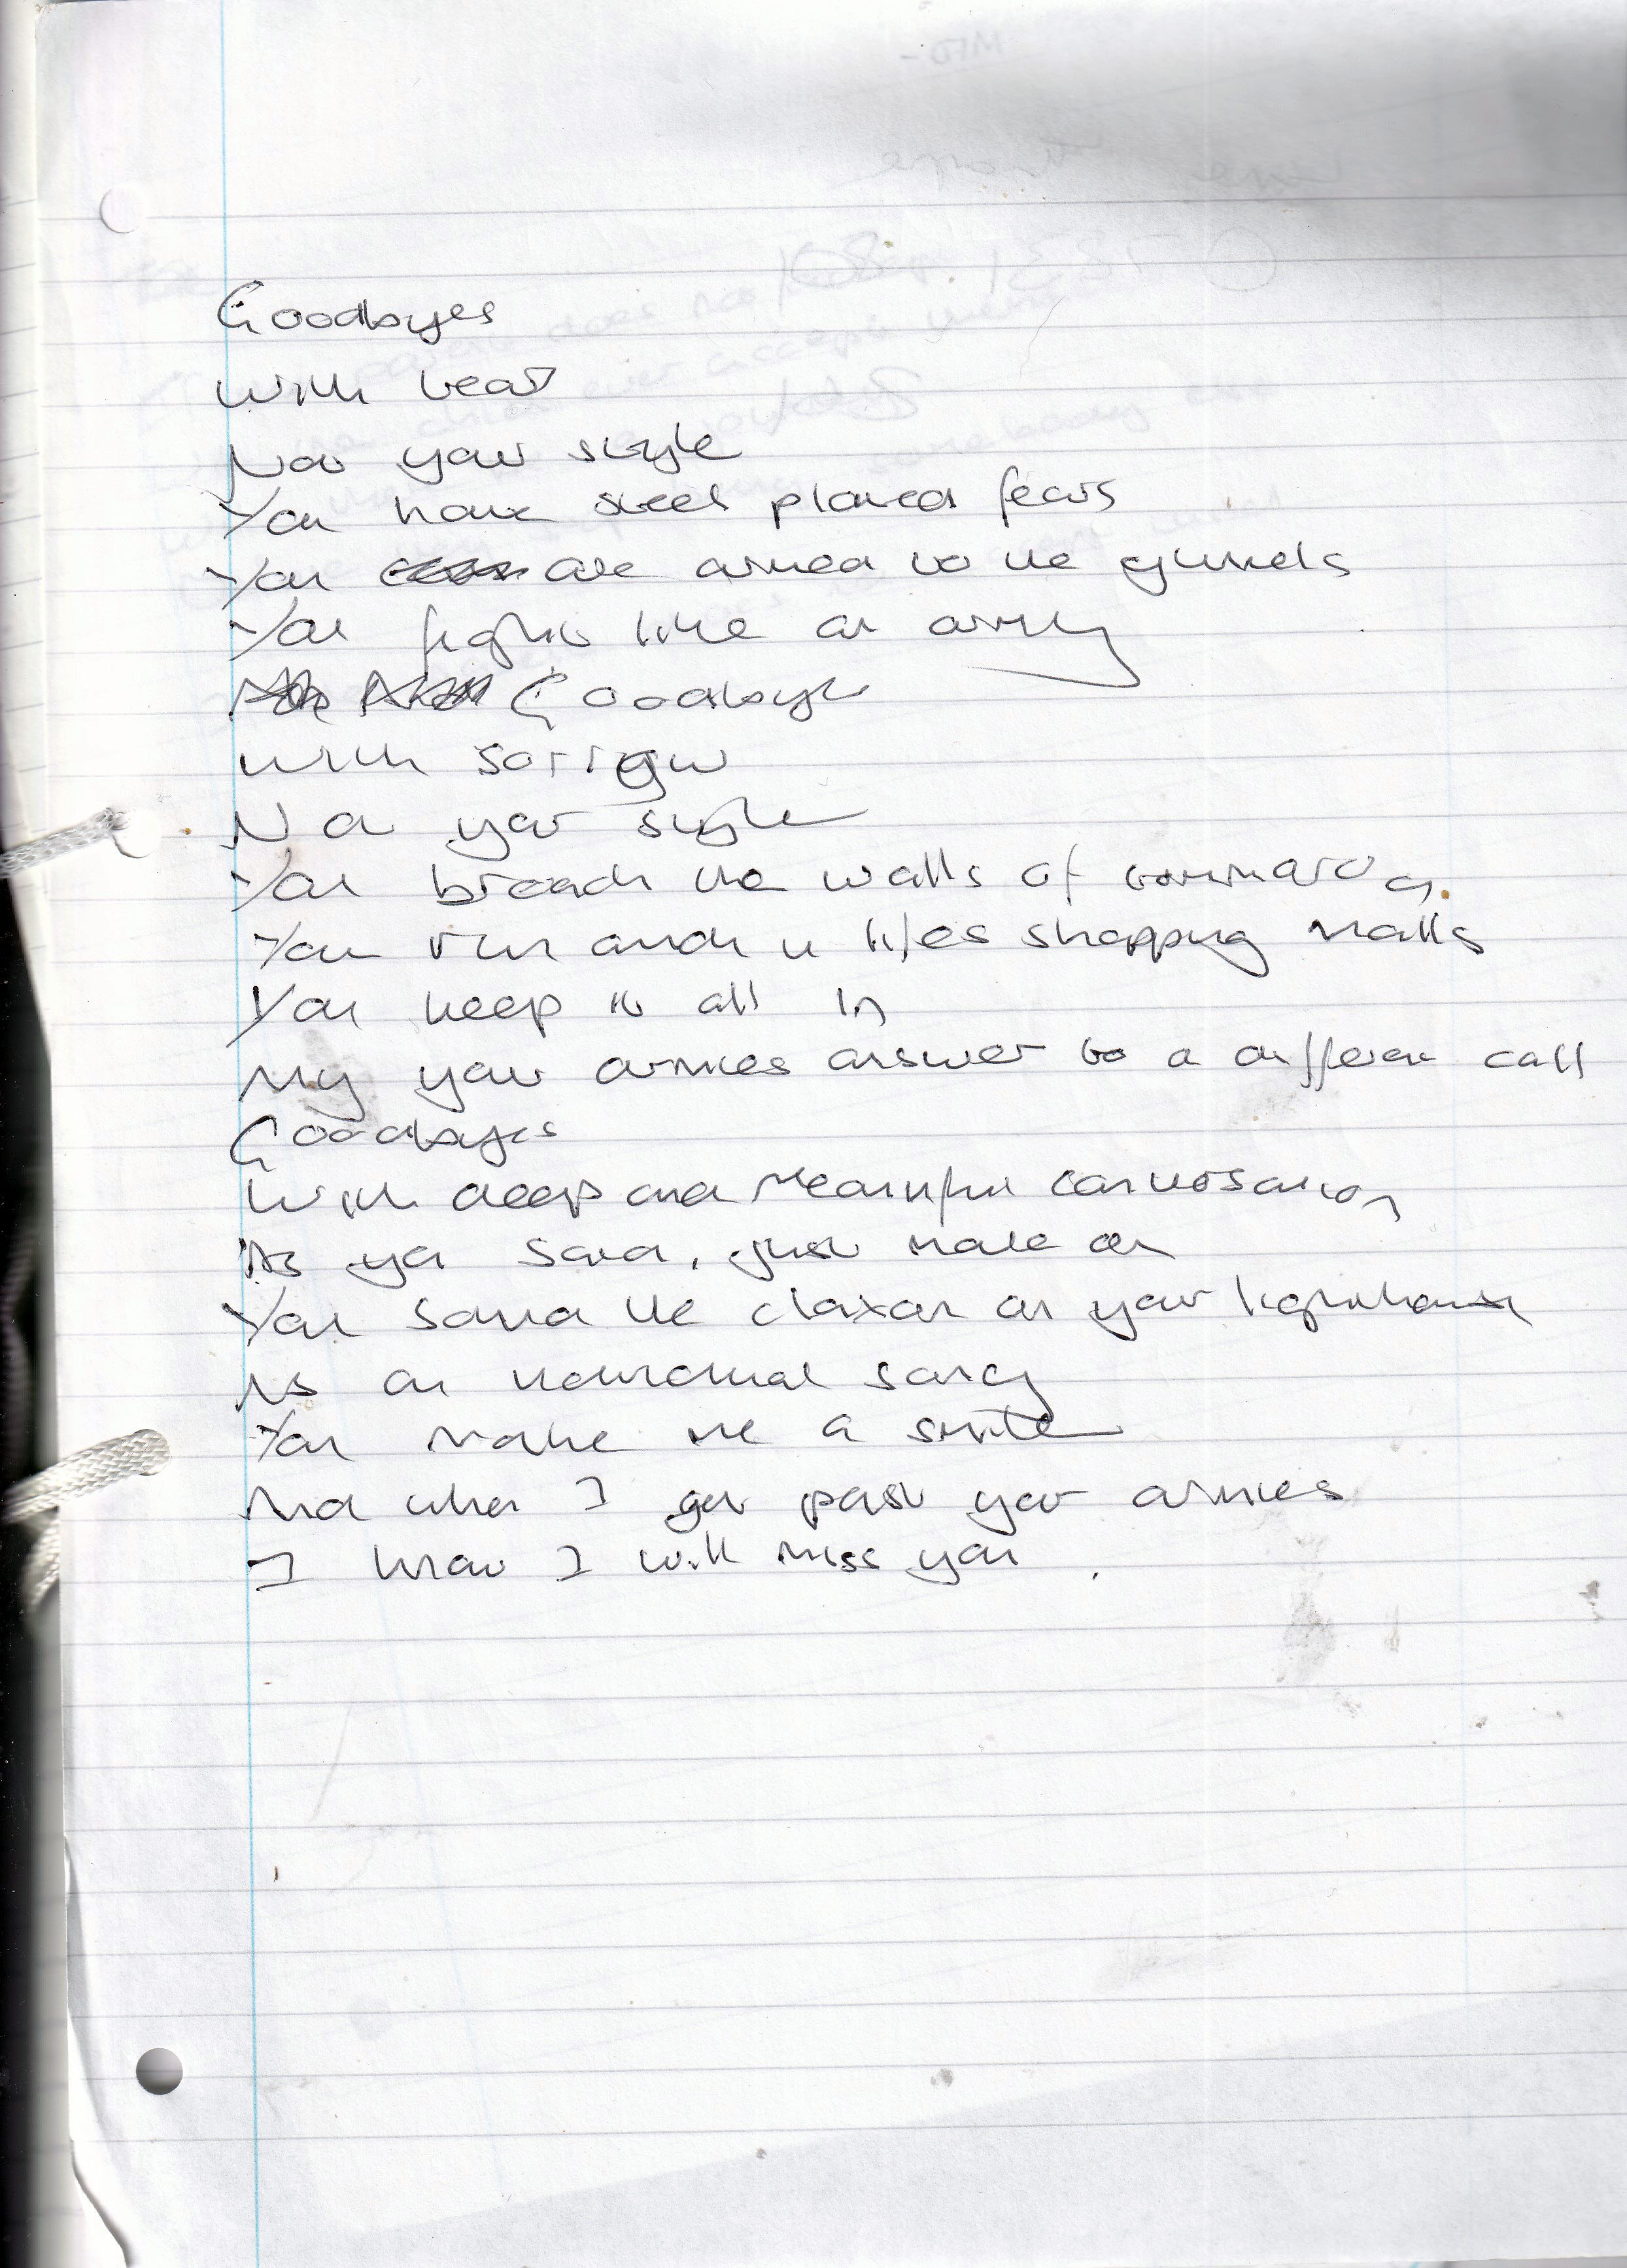 Goodbyes
With tears
Not your style
You have steel plated fears
You are armed to the gunnels
You fight like an army
Goodbye
With sorrow
Not your style
You breach the walls of
You run and in lifes shopping malls
You keep it all in
My your armies answer to a different call
Goodbyes
With deep and meaningful conversation
As you said, just
You sound the claxon on your lighthouse
As an song
You make me a smile
And when I get past your armies
I know I will miss you.